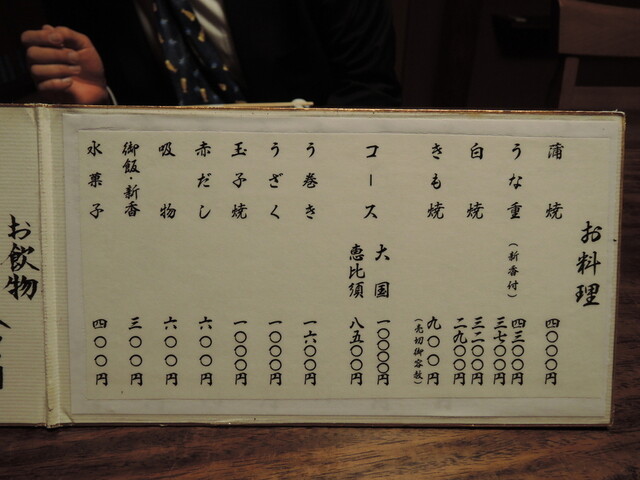 お料理
蒲焼 四〇〇〇円
うな重(新香付) 四三〇〇円
三七〇〇円
白焼 三二〇〇円
二九〇〇円
きも焼 九〇〇円
(売切御容赦)
コース 大国 一〇〇〇〇円
恵比須 八五〇〇円
う巻き 一六〇〇円
うざく 一〇〇〇円
玉子焼 一〇〇〇円
赤だし 六〇〇円
吸物 六〇〇円
御飯・新香 三〇〇円
水菓子 四〇〇円
お飲物